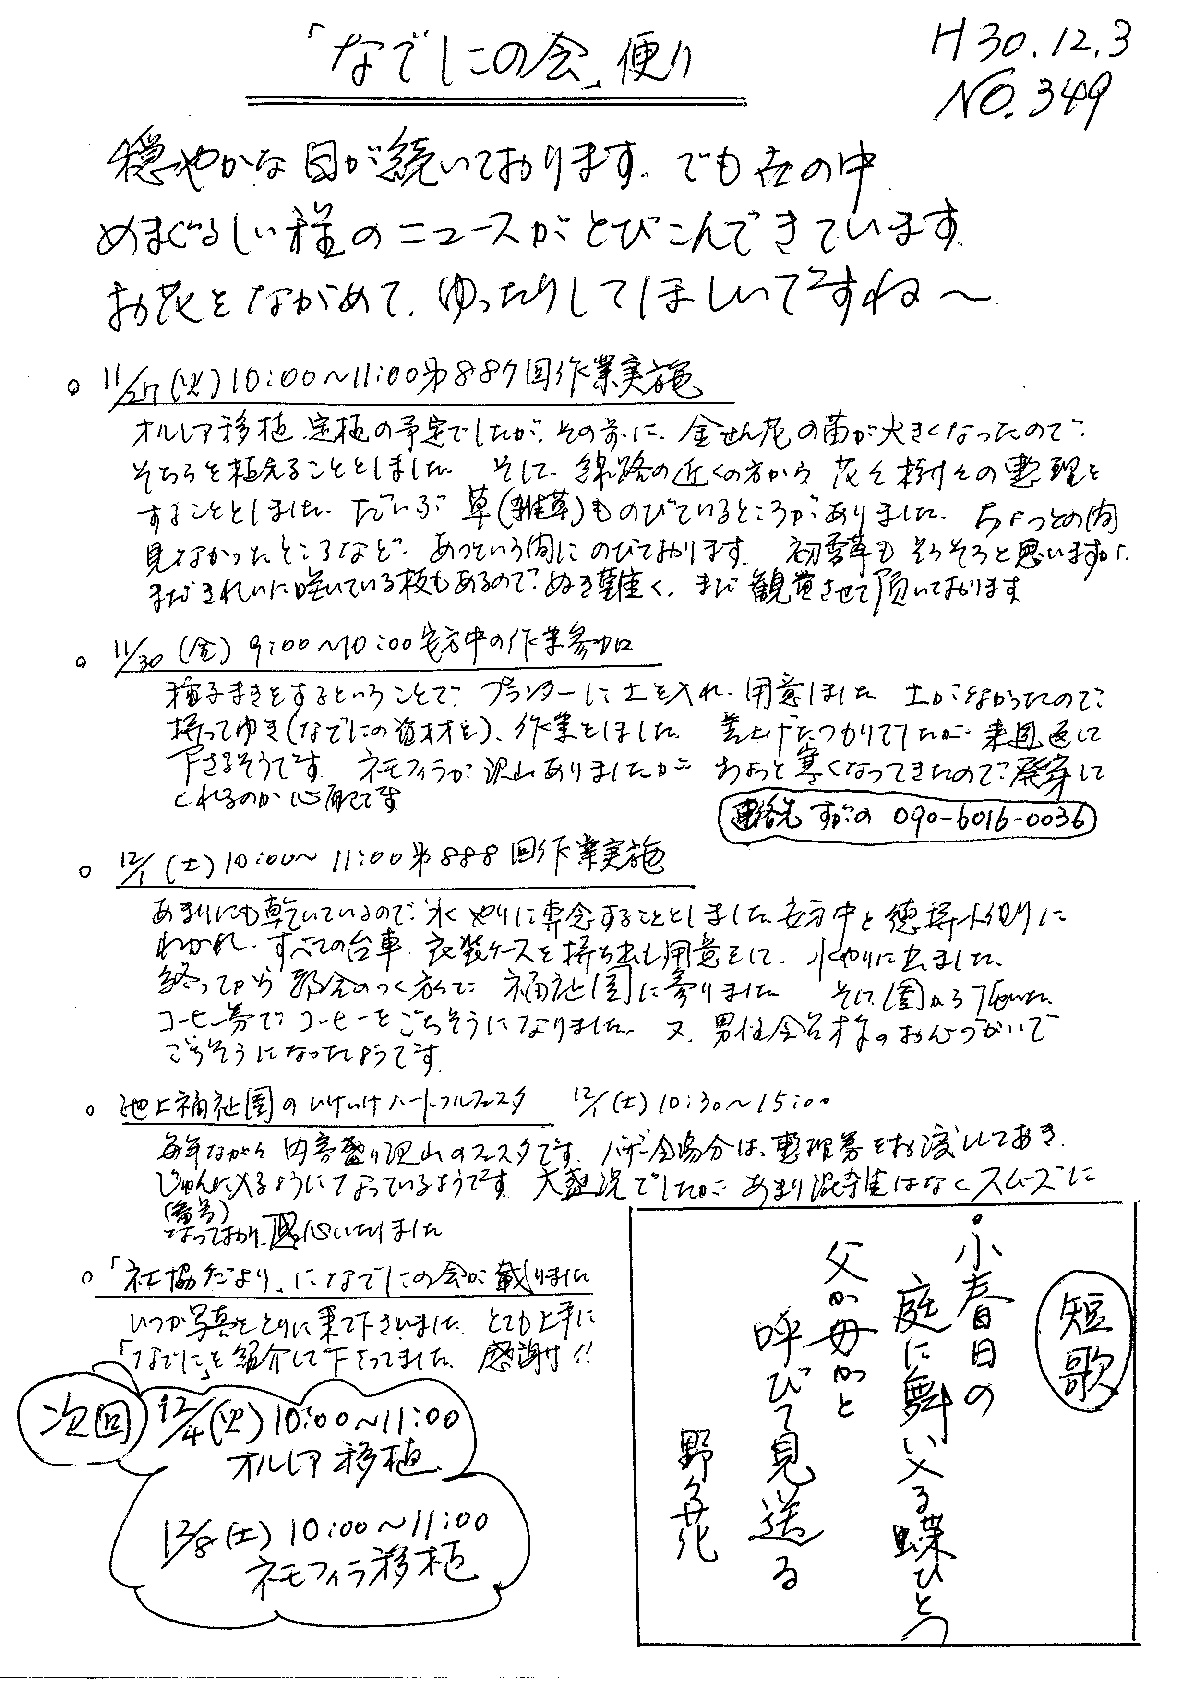 「なでしこの会」便り
H30.12.3
NO.349
穏やかな日が続いております。でも世の中
めまぐるしい様のニュースがとびこんできています。
お花をながめて、ゆったりしてほしいですね～
○ 11/27(火)10:00～11:00第887回作業実施
オルレア移植、定植の予定でしたが、その前に、金せん花の苗が大きくなったので、
そちらを植えることとしました。そして、線路の近くの方から 花と樹々の整理を
することとしました。だいぶ草(雑草)ものびているところがありました。ちょっとの間
見なかったところなど、あっという間にのびております。初雪草もそろそろと思いますが、
まだきれいに咲いている枝もあるので、ぬき難く、まだ観賞させて頂いております
○ 11/30(金) 9:00～10:00安方中の作業参加
種子まきをするということで、プランターに土を入れ、用意しました 土がなかったので、
持ってゆき(なでしこの資材を)、作業をしました。差上げたつもりでしたが、来週返して
下さるそうです。ネモフィラが沢山ありましたが、ちょっと寒くなってきたので、発芽して
くれるのか心配です
連絡先 すがの 090-6016-0036
○ 12/1(土)10:00～11:00第888回作業実施
あまりにも乾いているので、水やりに専念することとしました。安方中と徳持小便りに
わかれ、すべての台車、衣装ケースを持ち出し用意をして、水やりに出ました。
終ってから 都合のつく方で、福祉園に寄りました。そして、園から
コーヒー券で、コーヒーをごちそうになりました。又、男性会員様のお心づかいで
ごちそうになったようです。
○ 池上福祉園のいけいけハートフルフェスタ 12/1(土)10:30～15:00
毎年ながら 内容盛り沢山のフェスタです。バザー会場分は、整理券をお渡ししておき、
じゅんに入るようになっているようです。大盛況でしたが、あまり混雑はなくスムーズに
(番号)
なっており、感心いたしました
○「社協だより」になでしこの会が載りました
いつか写真をとりに来て下さいました。とても上手に
「なでしこ」を紹介して下さってました。感謝!!
次回
12/4(火)10:00～11:00
オルレア移植
12/8(土)10:00～11:00
ネモフィラ移植
短歌
・小春日の
庭に舞い入る蝶ひとつ
父か母かと
呼びて見送る
野々花